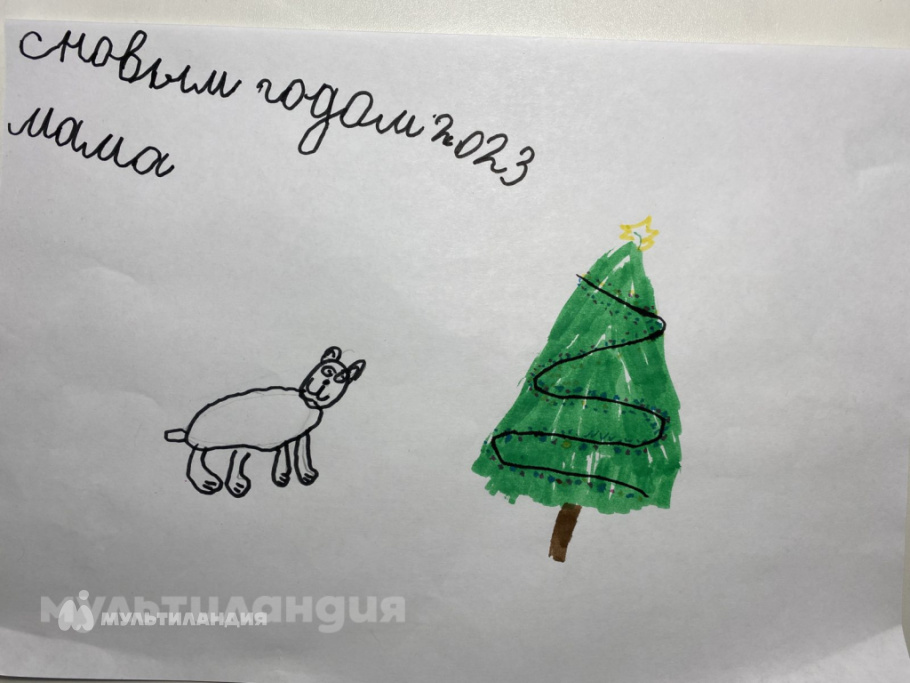 с новым годом 2023
мама
мультиландия
МУЛЬТИЛАНДИЯ